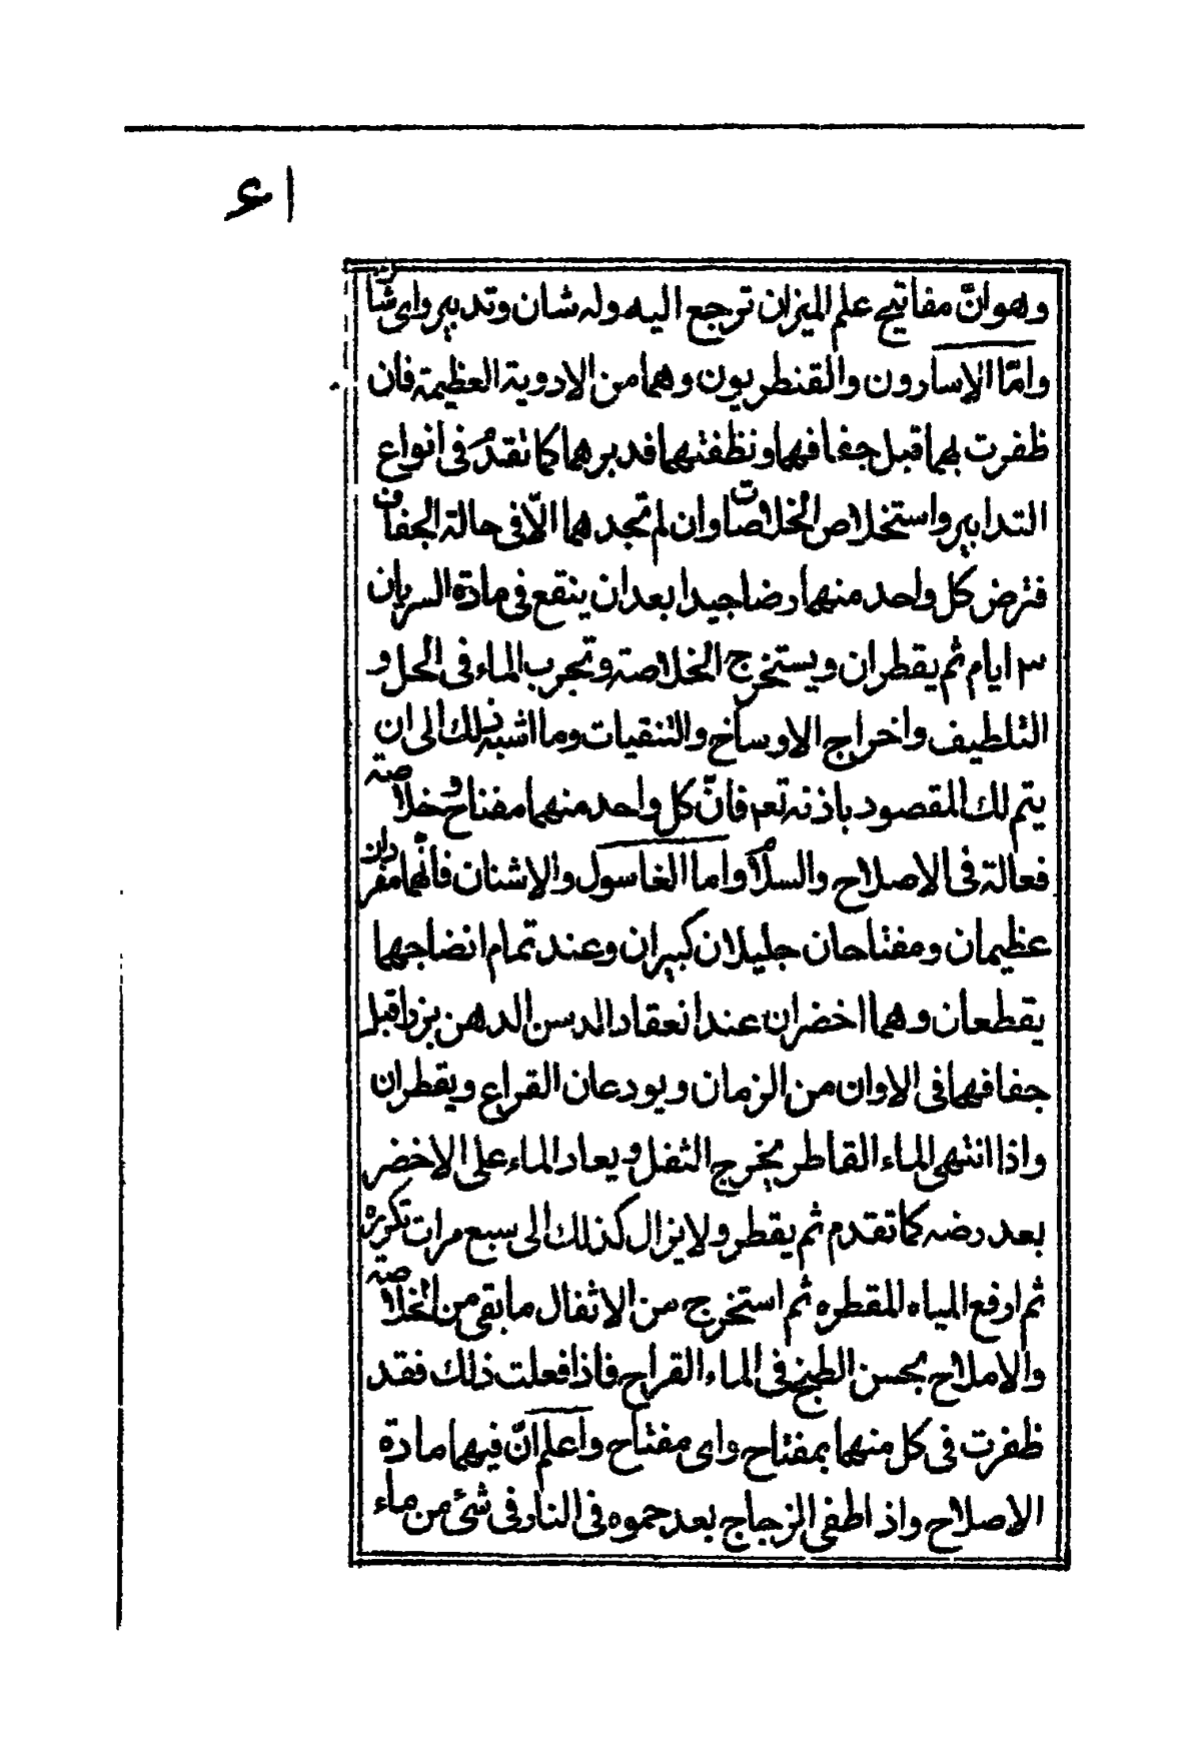 ١٤
وهو انّ مفاتيح علم الميزان ترجع اليه وله شان وتدبير واى شان
وامّا الإسارون والقنطريون وهما من الادوية العظيمة فان
ظفرت بهما قبل جفافهما ونظفتهما فدبرهما كما تقدم فى انواع
التدابير واستخلاص الخلاصات وان لم تجدهما الّا فى حالة الجفاف
فترض كل واحد منهما رضا جيدا بعد ان ينقع فى مادة السريان
٣ ايام ثم يقطران ويستخرج الخلاصة وتجرب الماء فى الحل و
التلطيف واخراج الاوساخ والتنقيات وما اشبه ذلك الى ان
يتم لك المقصود باذنه تعم فانّ كل واحد منهما مفتاح وخلاصة
فعالة فى الاصلاح والسلام واما الغاسول والإشنان فأنّهما مفردان
عظيمان ومفتاحان جليلان كبيران وعند تمام انضاجهما
يقطعان وهما اخضران عند انعقاد الدبسن الدهن بزر قبل
جفافهما فى الاوان من الزمان ويودعان القراع ويقطران
واذا انتهى الماء القاطر يخرج الثفل ويعاد الماء على الاخضر
بعد رضه كما تقدم ثم يقطر ولا يزال كذلك الى سبع مرات تكرره
ثم ارفع المياه المقطره ثم استخرج من الاثفال ما بقى من الخلاصة
والاملاح بحسن الطبخ فى الماء القراح فاذا فعلت ذلك فقد
ظفرت فى كل منهما بمفتاح واى مفتاح وأعلم انّ فيهما مادة
الاصلاح واذ اطفى الزجاج بعد حموه فى النار فى شئ من ماء